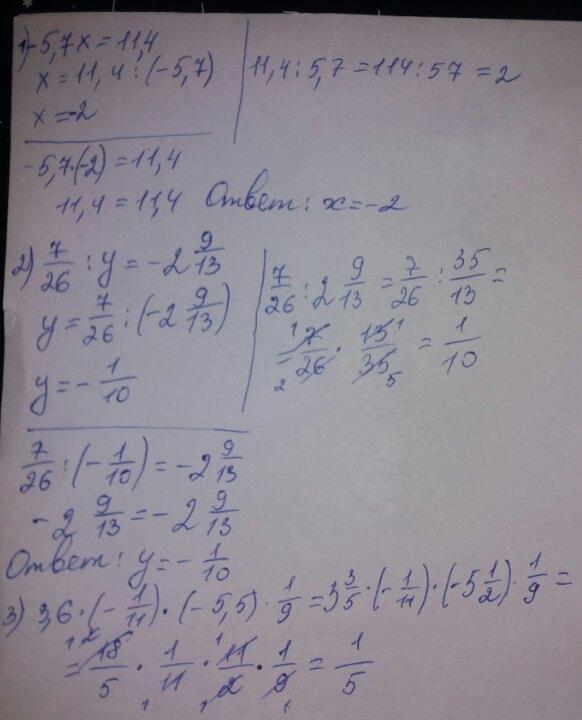 1) -5,7x = 11,4
x = 11,4 : (-5,7)
x = -2
11,4 : 5,7 = 114 : 57 = 2
-5,7·(-2) = 11,4
11,4 = 11,4 Ответ: x = -2
2) 7/26 : y = -2 9/13
y = 7/26 : (-2 9/13)
y = - 1/10
7/26 : 2 9/13 = 7/26 : 35/13 =
= 7/26 · 13/35 = 1/10
1 1 2 5
7/26 : (- 1/10) = -2 9/13
-2 9/13 = -2 9/13
Ответ: y = - 1/10
3) 3,6 · (- 1/11) · (-5,5) · 1/9 = 3 3/5 · (- 1/11) · (-5 1/2) · 1/9 =
= 18/5 · 1/11 · 11/2 · 1/9 = 1/5
1 2 1 1 1 1